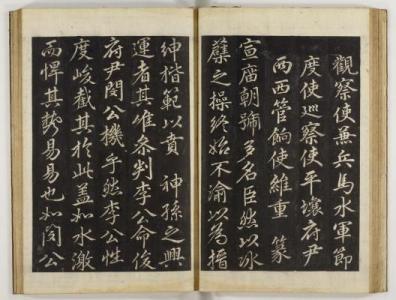 觀察使兼兵馬水軍節
度使巡察使平壤府尹
西西管餉使維重　篆
宣庿朝號多名臣然以冰
蘖之操終始不渝以為搢
紳楷範以賁　神孫之興
運者其唯叅判李公命俊
府尹閔公機乎然李公性
度峻截其於此蓋如水激
而悍其勢易易也如閔公